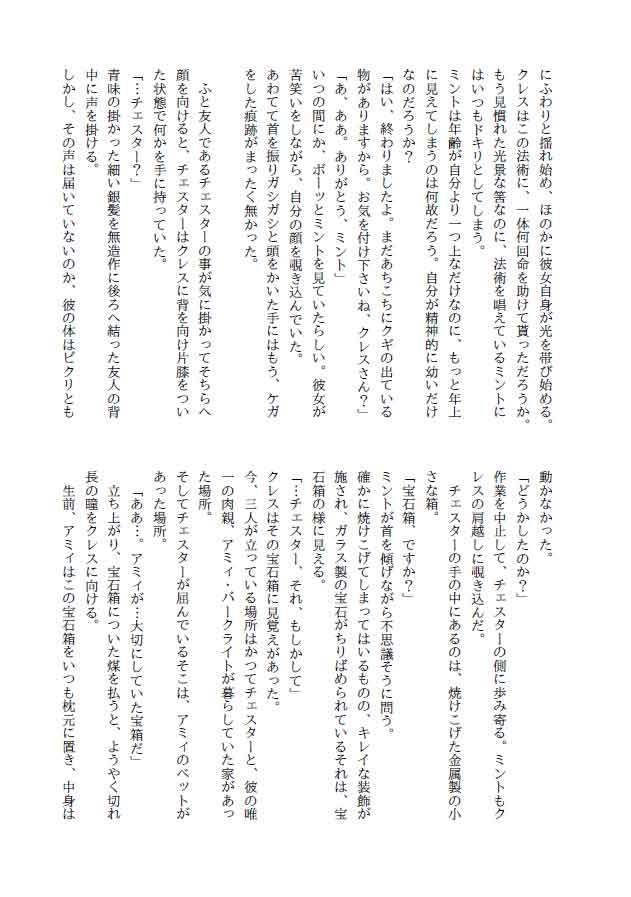 にふわりと揺れ始め、ほのかに彼女自身が光を帯び始める。
クレスはこの法術に、一体何回命を助けて貰っただろうか。
もう見慣れた光景な筈なのに、法術を唱えているミントに
はいつもドキリとしてしまう。
ミントは年齢が自分より一つ上なだけなのに、もっと年上
に見えてしまうのは何故だろう。自分が精神的に幼いだけ
なのだろうか？
「はい、終わりましたよ。まだあちこちにクギの出ている
物がありますから。お気を付け下さいね、クレスさん？」
「あ、ああ。ありがとう、ミント」
いつの間にか、ボーッとミントを見ていたらしい。彼女が
苦笑いをしながら、自分の顔を覗き込んでいた。
あわてて首を振りガシガシと頭をかいた手にはもう、ケガ
をした痕跡がまったく無かった。
ふと友人であるチェスターの事が気に掛かってそちらへ
顔を向けると、チェスターはクレスに背を向け片膝をつい
た状態で何かを手に持っていた。
「…チェスター？」
青味の掛かった細い銀髪を無造作に後ろへ結った友人の背
中に声を掛ける。
しかし、その声は届いていないのか、彼の体はピクリとも
動かなかった。
「どうかしたのか？」
作業を中止して、チェスターの側に歩み寄る。ミントもク
レスの肩越しに覗き込んだ。
チェスターの手の中にあるのは、焼けこげた金属製の小
さな箱。
「宝石箱、ですか？」
ミントが首を傾げながら不思議そうに問う。
確かに焼けこげてしまってはいるものの、キレイな装飾が
施され、ガラス製の宝石がちりばめられているそれは、宝
石箱の様に見える。
「…チェスター、それ、もしかして」
クレスはその宝石箱に見覚えがあった。
今、三人が立っている場所はかつてチェスターと、彼の唯
一の肉親、アミィ・バークライトが暮らしていた家があっ
た場所。
そしてチェスターが屈んでいるそこは、アミィのベットが
あった場所。
「ああ…。アミィが…大切にしていた宝箱だ」
立ち上がり、宝石箱についた煤を払うと、ようやく切れ
長の瞳をクレスに向ける。
生前、アミィはこの宝石箱をいつも枕元に置き、中身は